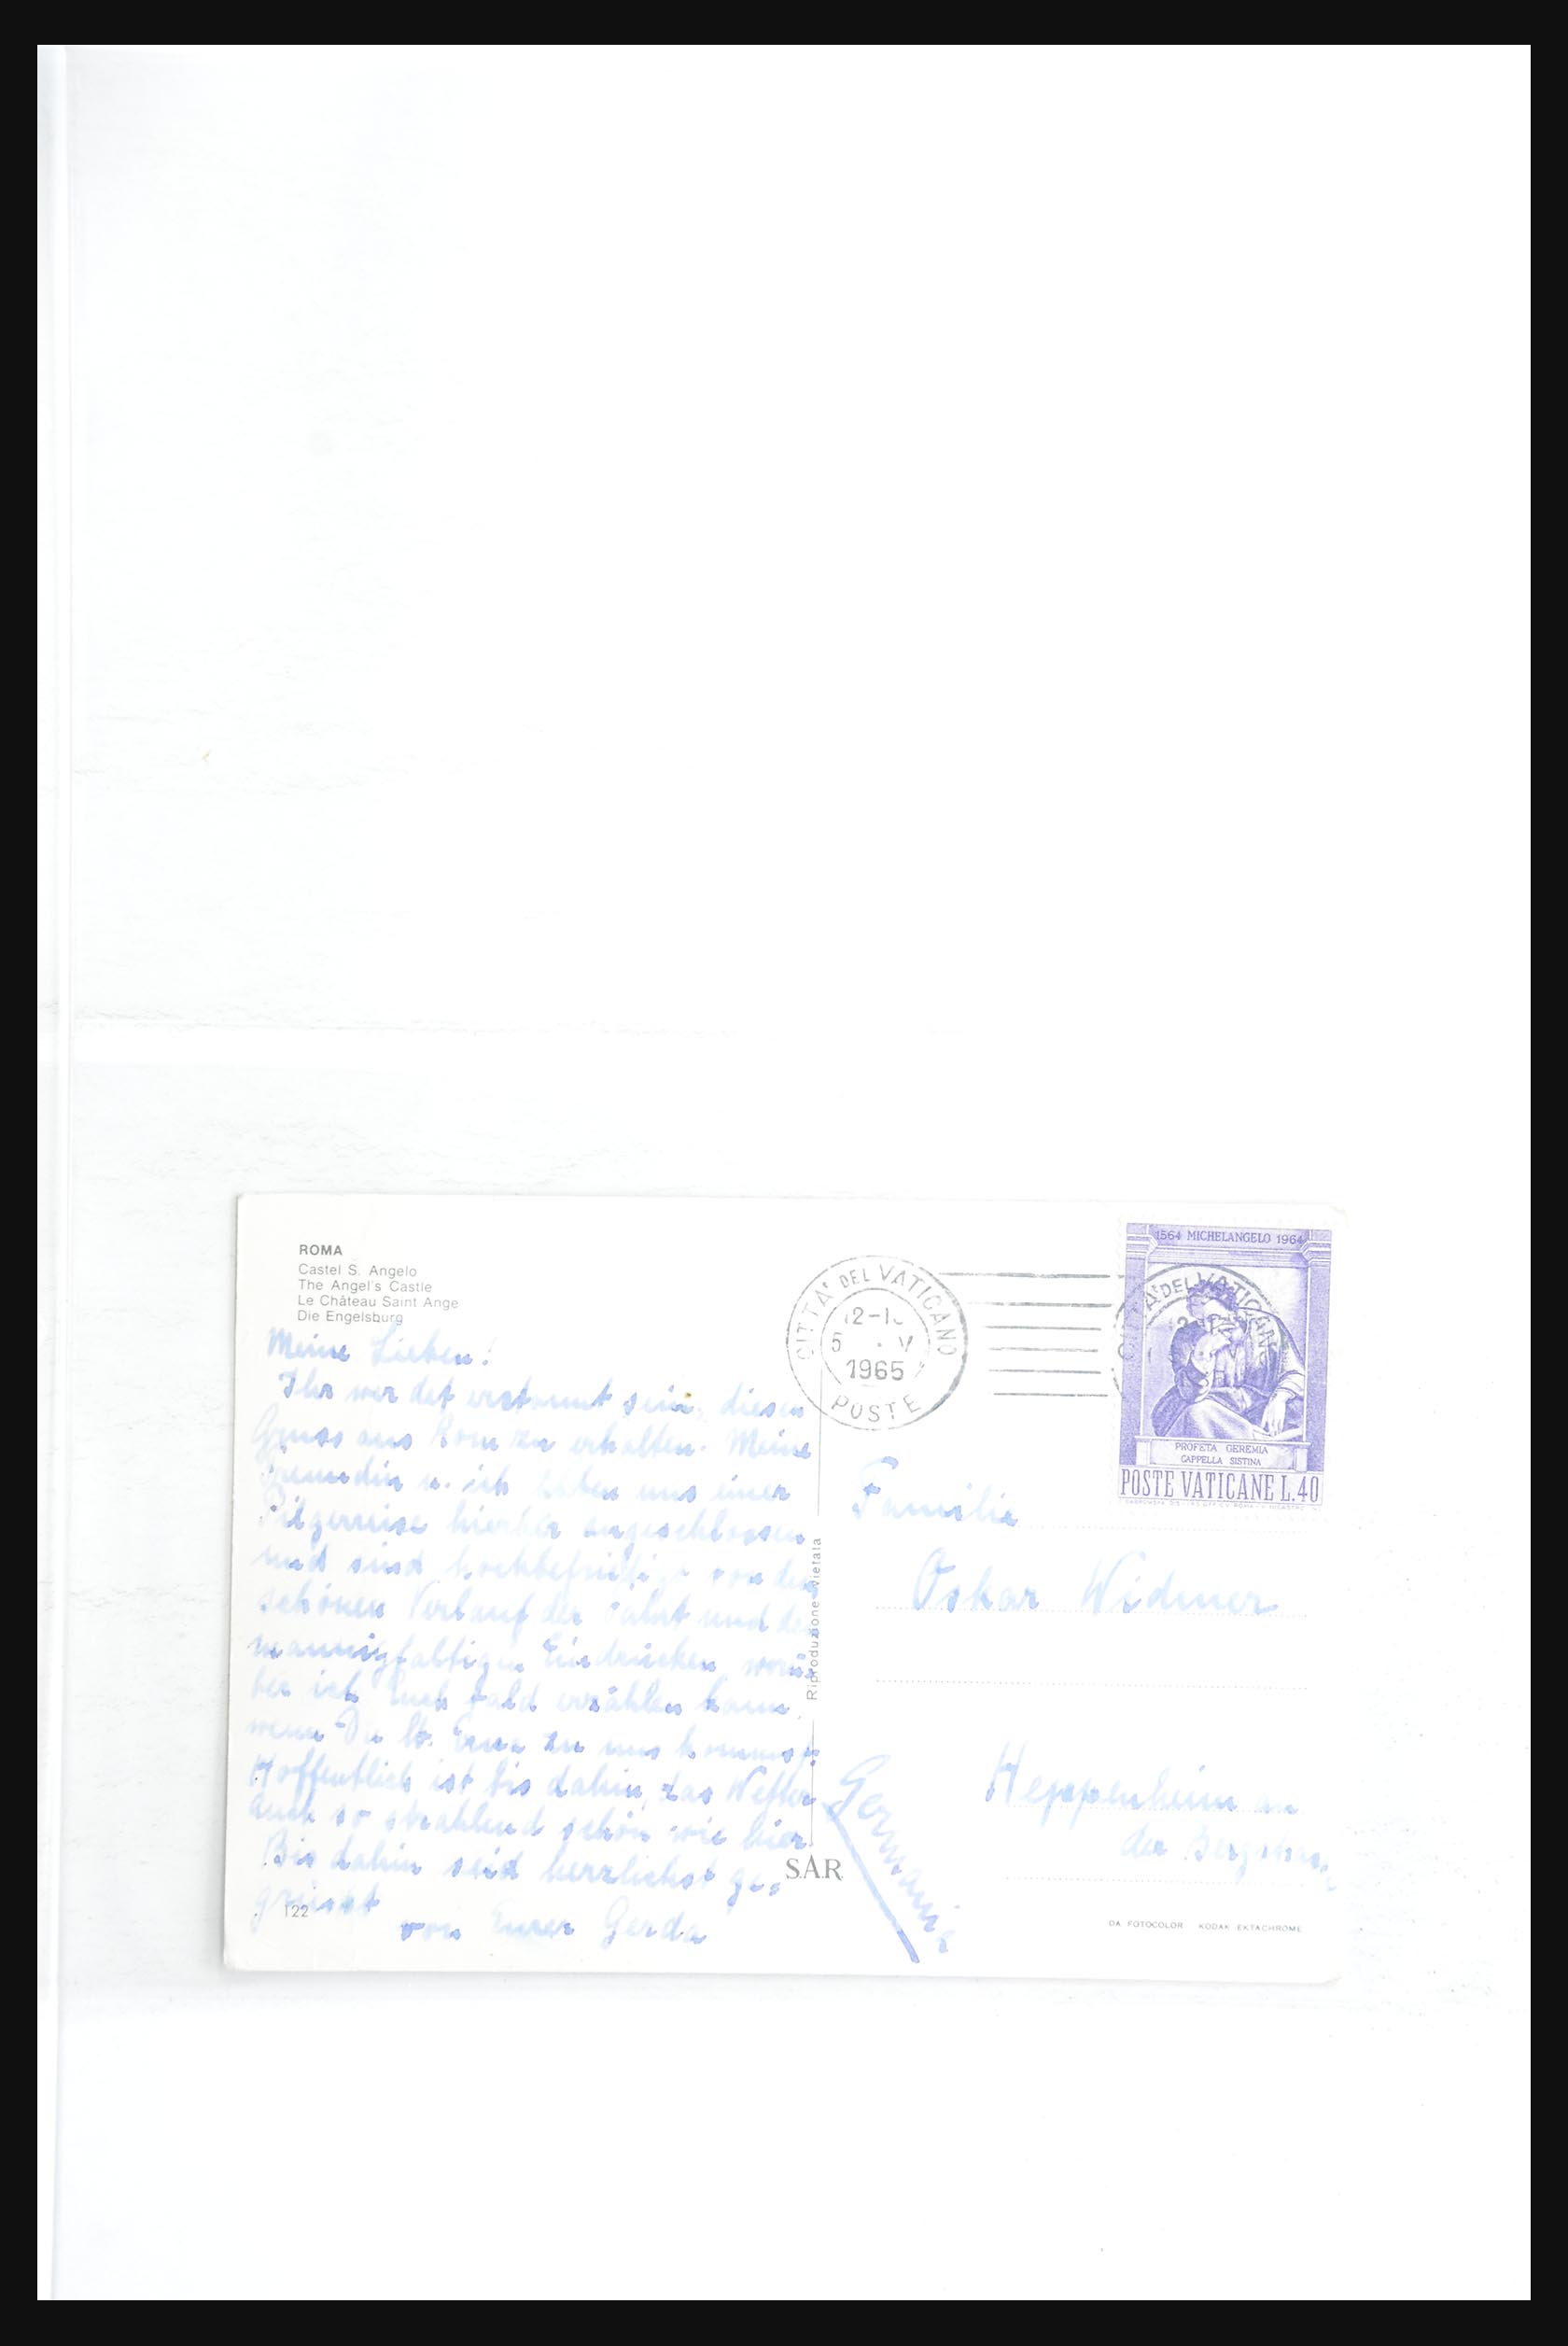 ROMA
Castel S. Angelo
The Angel's Castle
Le Château Saint Ange
Die Engelsburg
Meine Lieben!
Ihr werdet erstaunt sein, diesen
Gruss aus Rom zu erhalten. Meine
Freundin u. ich haben uns einer
Pilgerreise hierher angeschlossen
und sind hochbefriedigt von dem
schönen Verlauf der Fahrt und den
mannigfaltigen Eindrücken, worü-
ber ich Euch bald erzählen kann,
wenn Du lb. zu uns kommst.
Hoffentlich ist bis dahin das Wetter
auch so strahlend schön wie hier.
Bis dahin seid herzlichst ge-
grüsst
von Eurer Gerda
122
Riproduzione vietata
S.A.R
CITTA' DEL VATICANO
5 V
1965
POSTE
1564 MICHELANGELO 1964
PROFETA GEREMIA
CAPPELLA SISTINA
POSTE VATICANE L.40
Familie
Oskar Widmer
Heppenheim an
der Bergstr.
Germania
DA FOTOCOLOR KODAK EKTACHROME